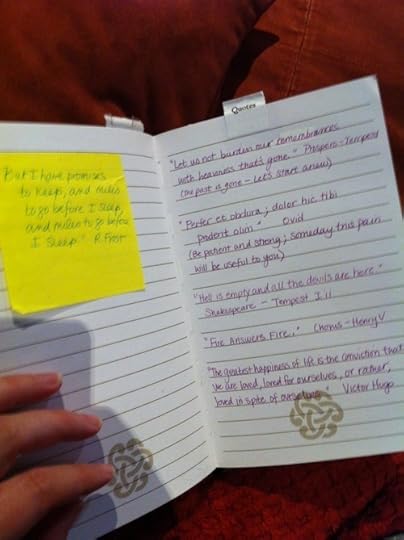 "But I have promises
to keep, and miles
to go before I sleep,
and miles to go before
I sleep." R. Frost
Quotes
"Let us not burden our remembrances
with heaviness that's gone." Prospero - Tempest
(the past is gone - Let's start anew)
"Perfer et obdura; dolor hic tibi
proderit olim" Ovid
(Be patient and strong; someday this pain
will be useful to you)
"Hell is empty and all the devils are here."
Shakespeare - Tempest I.ii
"Fire Answers Fire.." Chorus - Henry V
"The greatest happiness of life is the conviction that
we are loved, loved for ourselves, or rather,
loved in spite of ourselves." Victor Hugo